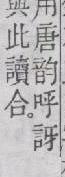 用唐韵呼訝
與此讀合。